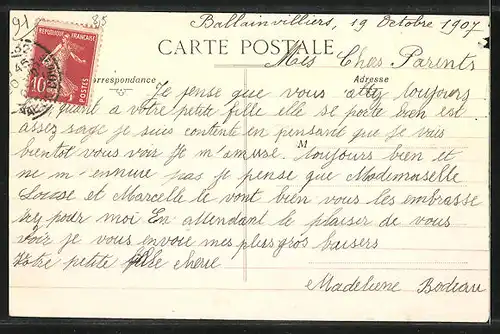 91 85
Ballainvilliers, 19 Octobre 1907
REPUBLIQUE FRANÇAISE
10
CARTE POSTALE
Mes Chers Parents
Correspondance Adresse
Je pense que vous allez toujours
quant a votre petite fille elle se porte bien est
assez sage je suis contente en pensant que je vais
bientot vous voir Je m'amuse M toujours bien et
ne m'ennuie pas je pense que Mademoiselle
Louise et Marcelle le vont bien vous les embrasse
rez pour moi En attendant le plaisir de vous
voir je vous envoie mes plus gros baisers
Votre petite fille cherie
Madeliene Bodeau